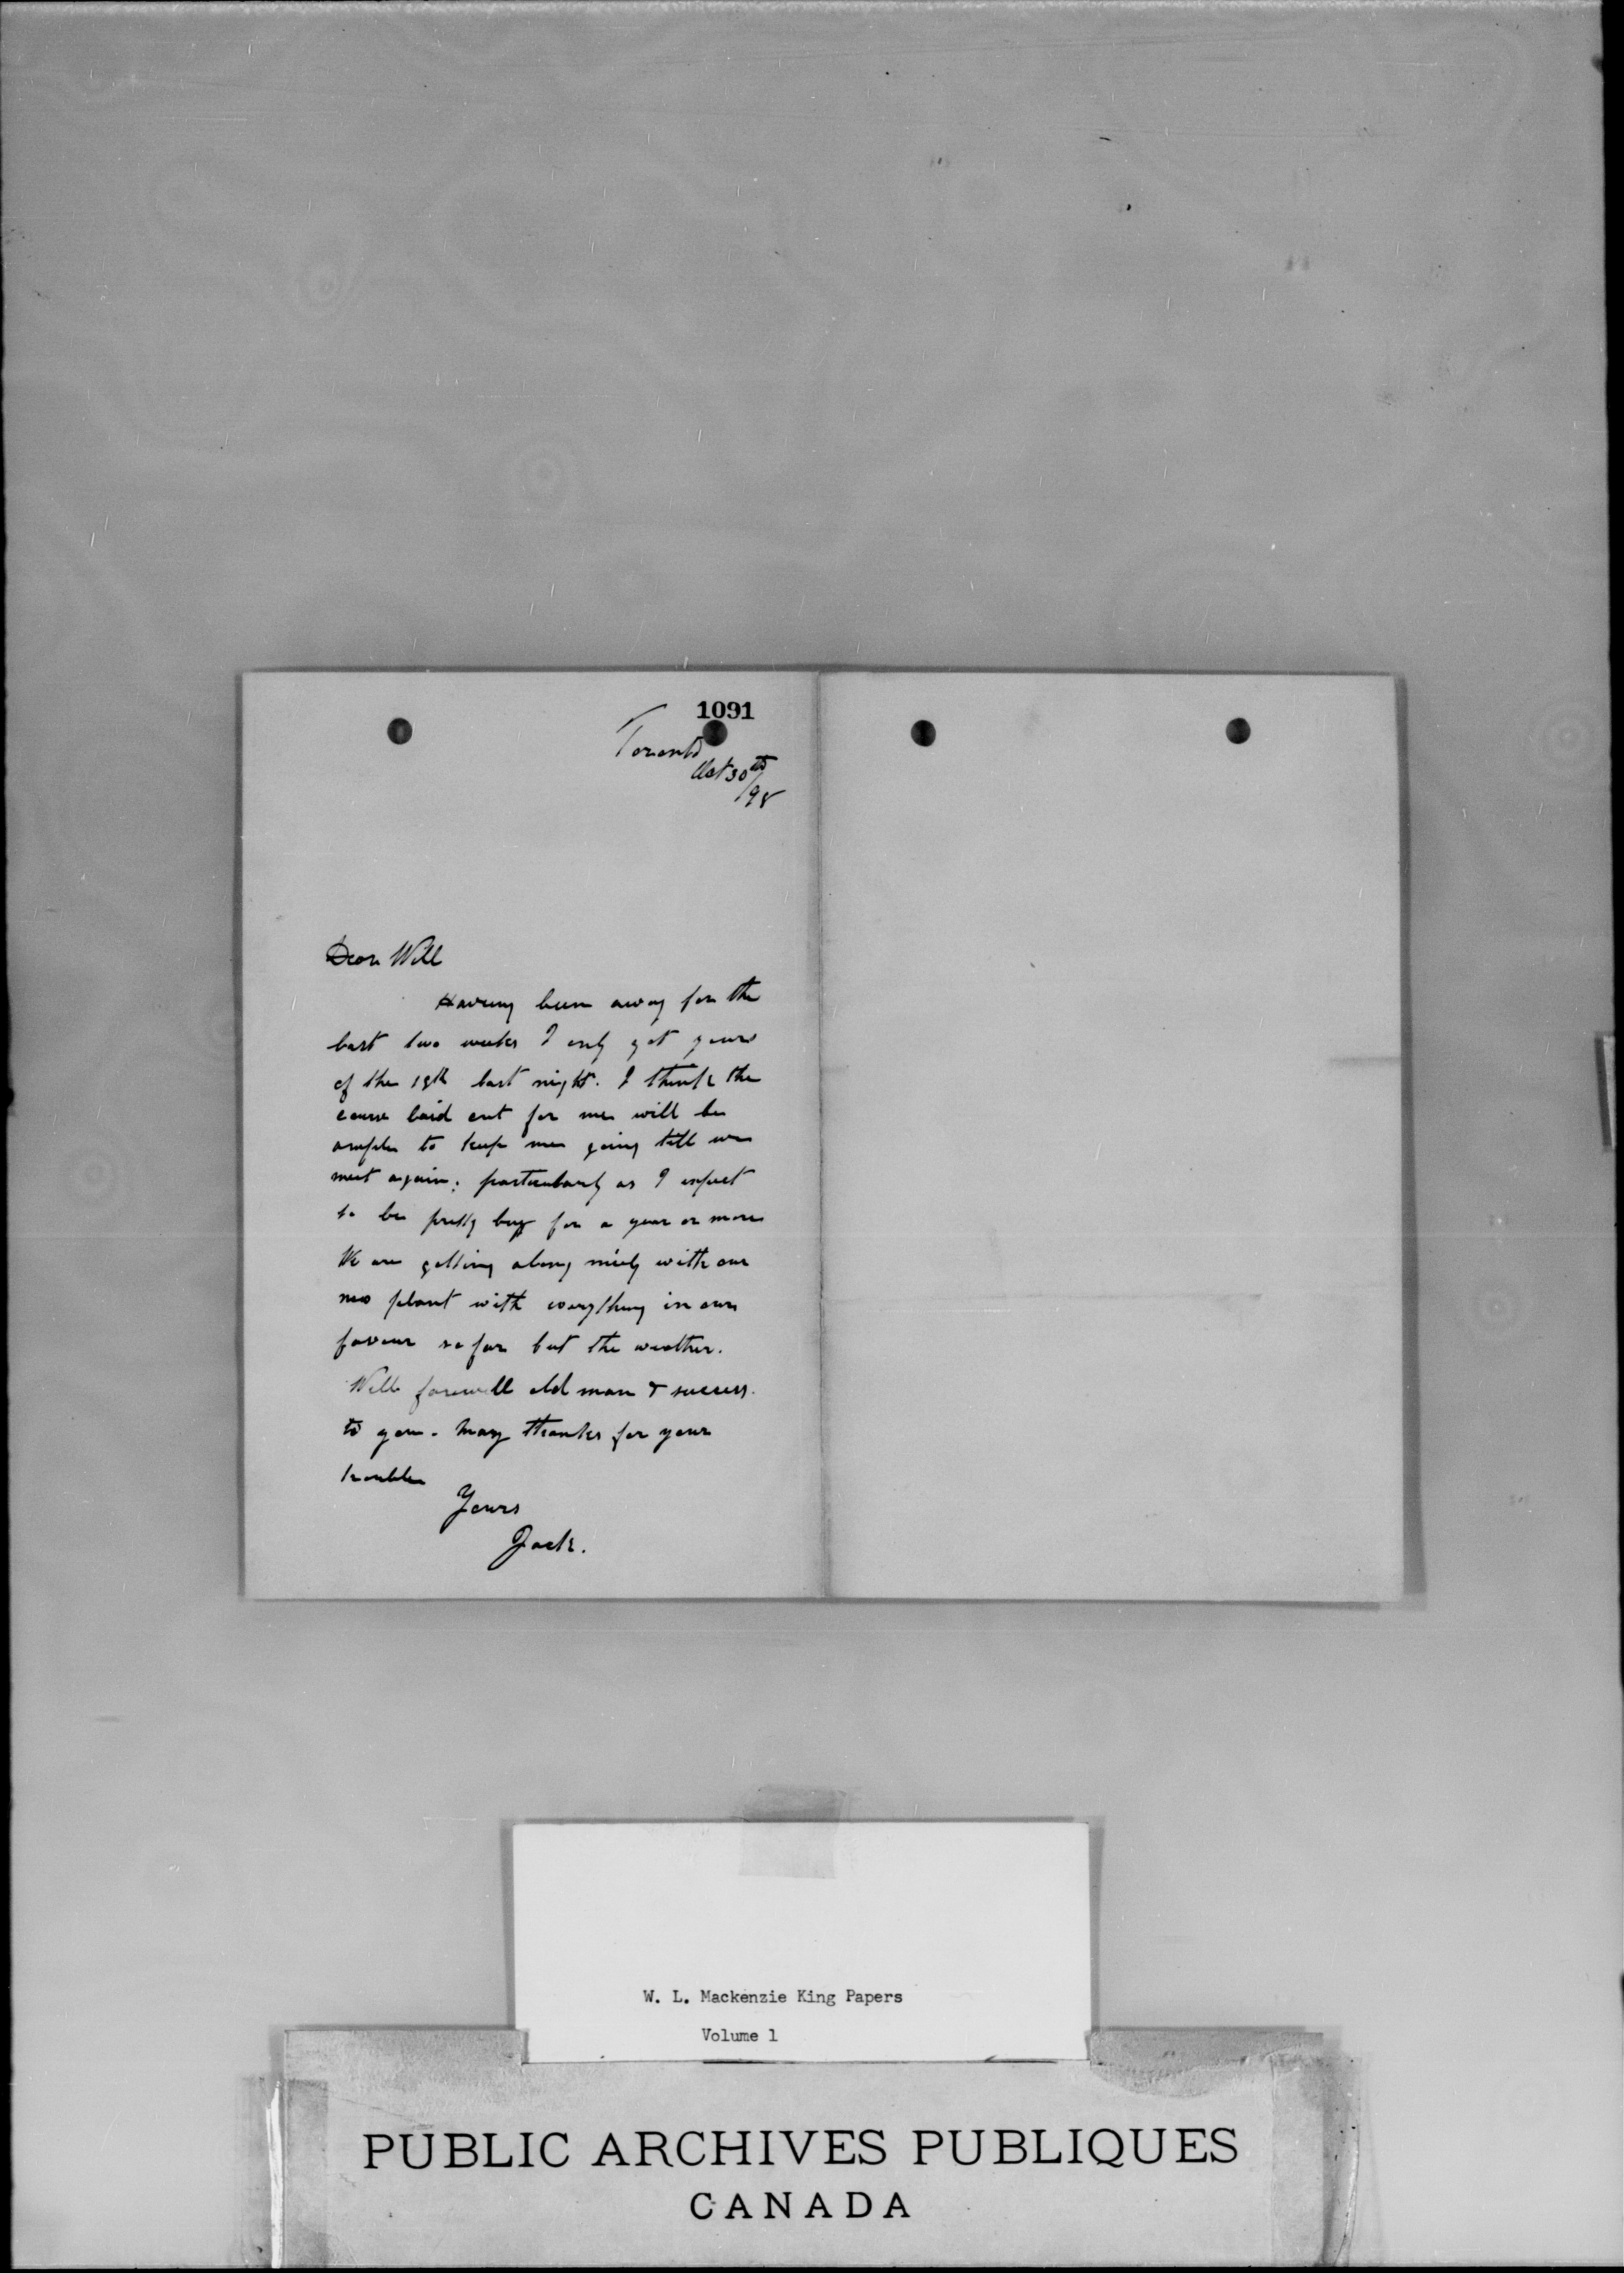 1091
Toronto
Oct 30th
/98
Dear Will
Having been away for the
last two weeks I only got yours
of the 19th last night. I think the
course laid out for me will be
ample to keep me going till we
meet again; particularly as I expect
to be pretty busy for a year or more
We are getting along nicely with our
new plant with everything in our
favour so far but the weather.
Well farewell old man & success
to you. Many thanks for your
trouble
Yours
Jack.
W. L. Mackenzie King Papers
Volume 1
PUBLIC ARCHIVES PUBLIQUES
CANADA